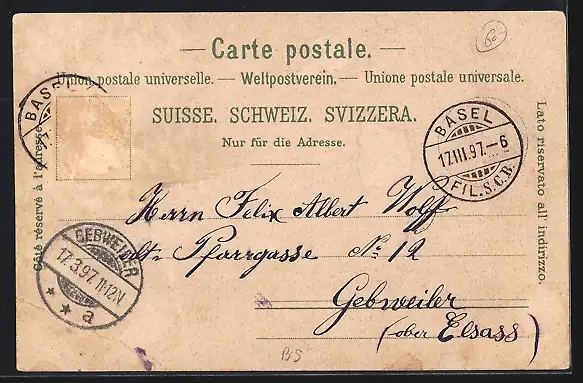 — Carte postale. —
Union postale universelle. — Weltpostverein. — Unione postale universale.
SUISSE. SCHWEIZ. SVIZZERA.
Nur für die Adresse.
Côté réservé à l'adresse.
Lato riservato all' indirizzo.
BASEL
BASEL
17.III.97.–6
FIL.S.C.B.
Herrn Felix Albert Wolff
alte Pfarrgasse No 12
Gebweiler
(ober Elsass)
GEBWEILER
17.3.97. 11-12V.
* * a
BS